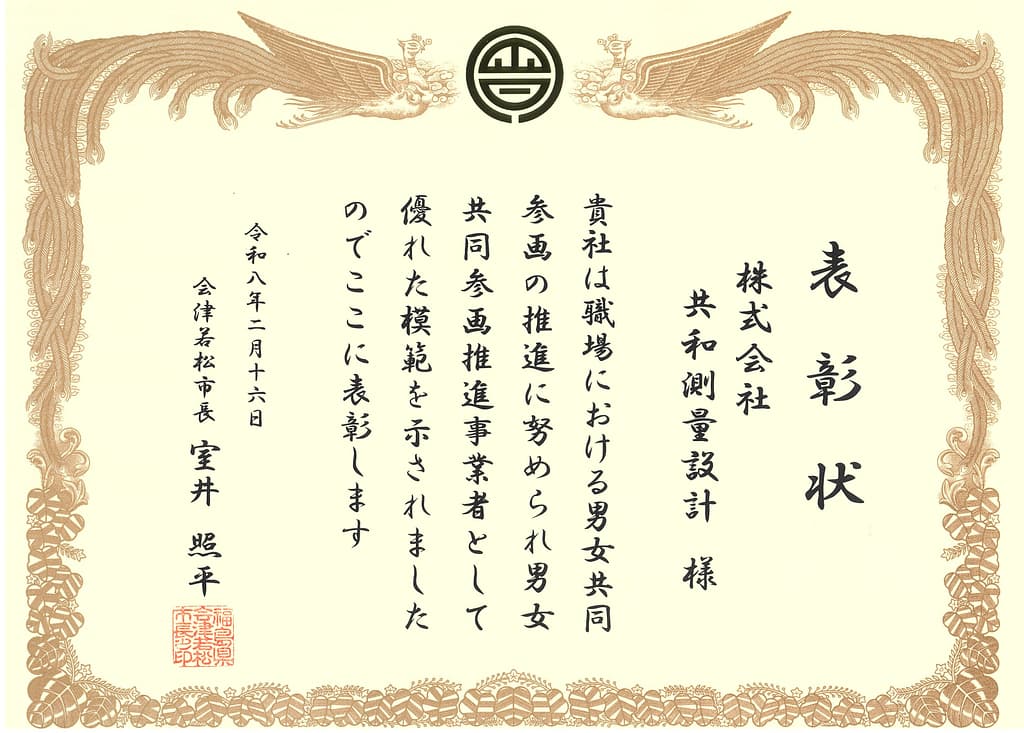 表彰状
株式会社
共和測量設計 様
貴社は職場における男女共同
参画の推進に努められ男女
共同参画推進事業者として
優れた模範を示されました
のでここに表彰します
令和八年二月十六日
会津若松市長 室井 照平
福島県
会津若松
市長之印